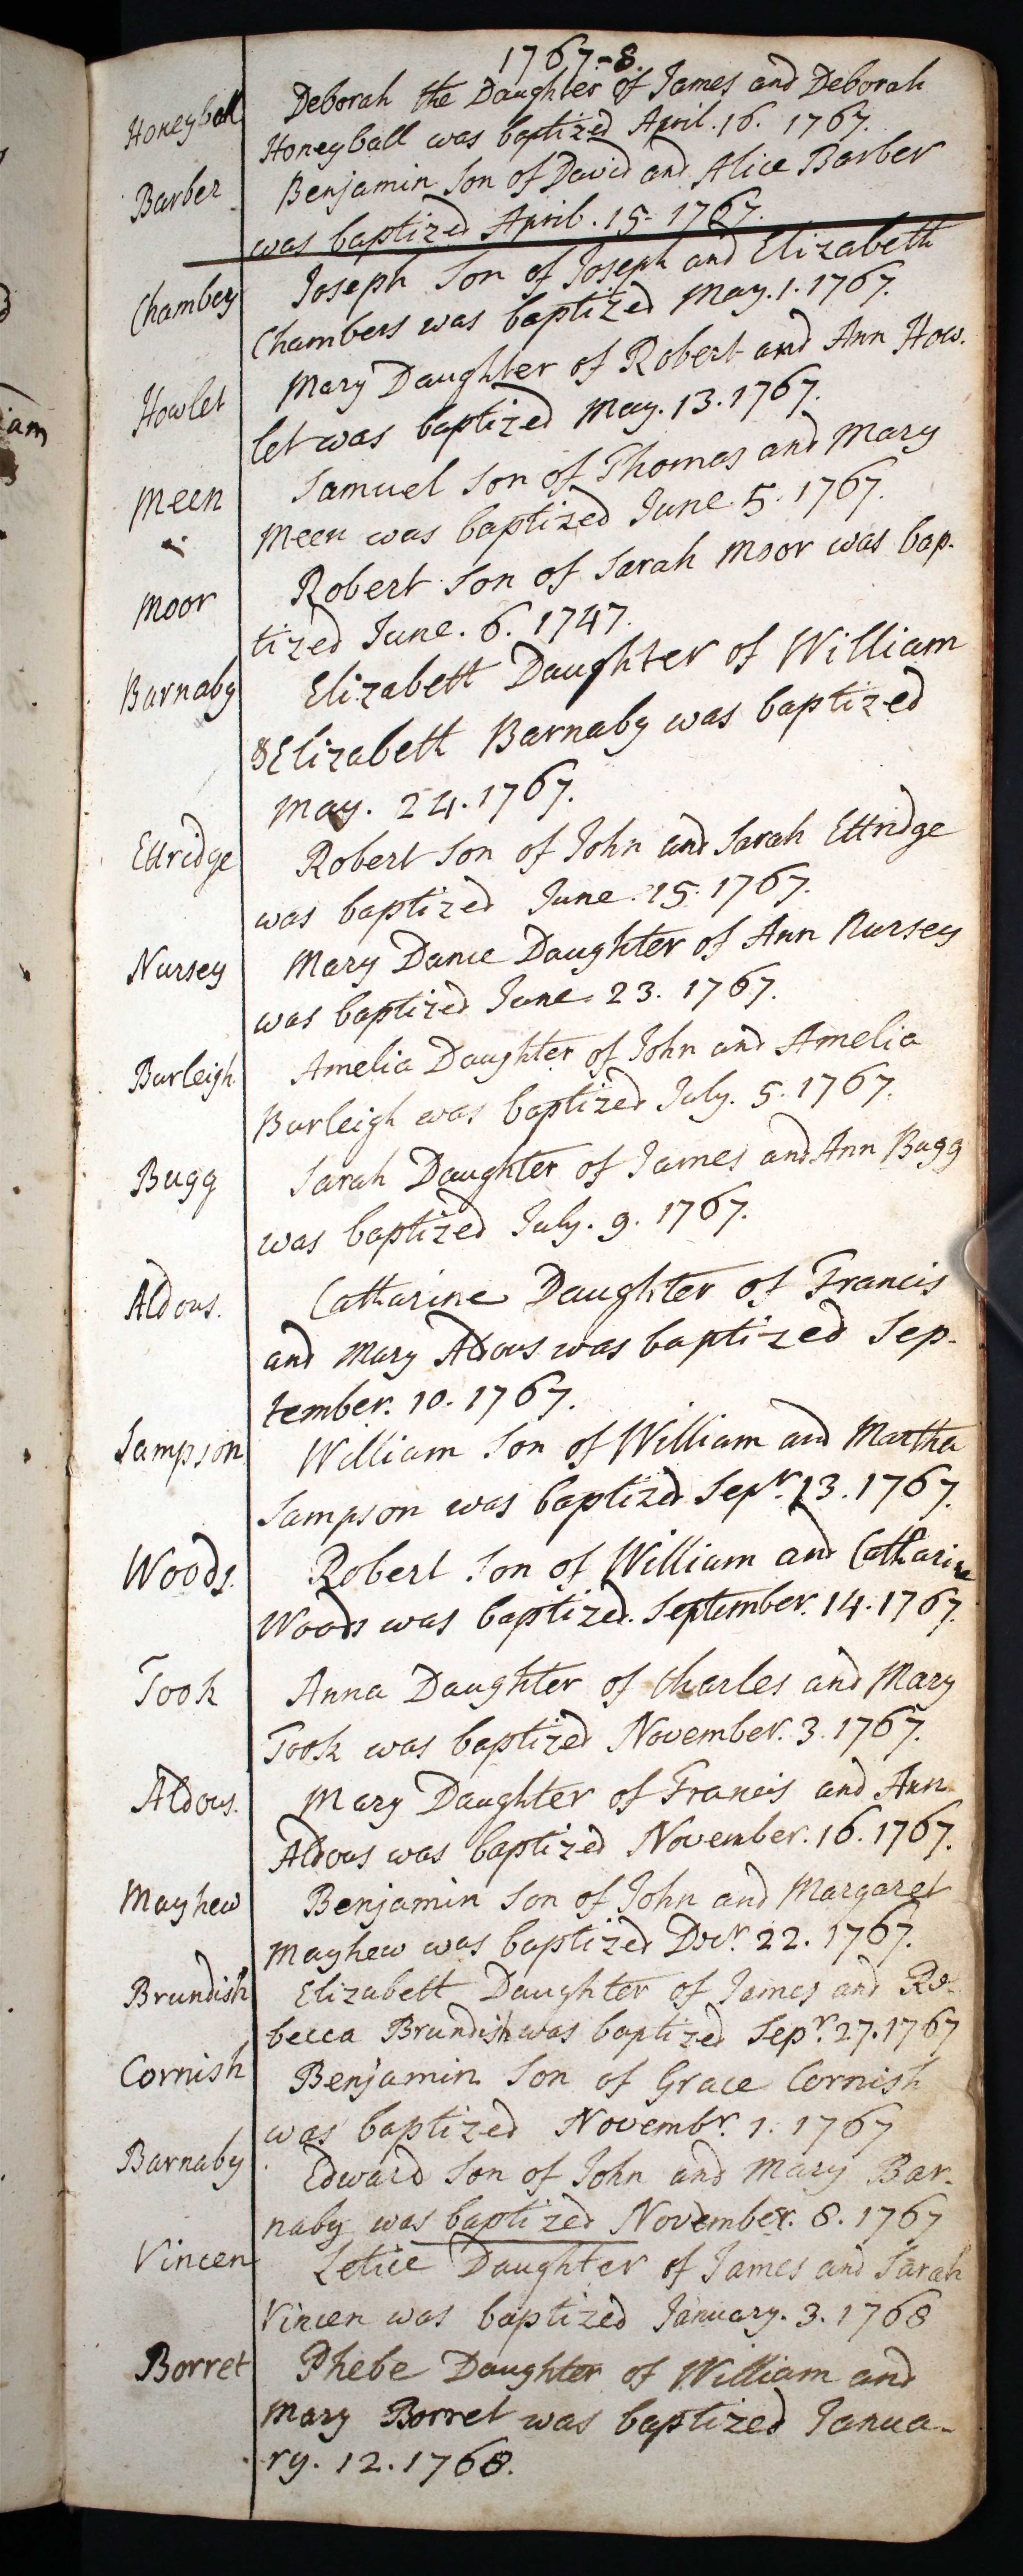 1767-8.
Honeyball
Deborah the Daughter of James and Deborah
Honeyball was baptized April. 16. 1767.
Barber
Benjamin Son of David and Alice Barber
was baptized April. 15. 1767.
Chambers
Joseph Son of Joseph and Elizabeth
Chambers was baptized May. 1. 1767.
Howlet
Mary Daughter of Robert and Ann How.
let was baptized May. 13. 1767.
Meen
Samuel Son of Thomas and Mary
Meen was baptized June. 5. 1767.
Moor
Robert Son of Sarah Moor was bap.
tized June. 6. 1747.
Barnaby
Elizabett Daughter of William
& Elizabett Barnaby was baptized
May. 24. 1767.
Ettridge
Robert Son of John and Sarah Ettridge
was baptized June. 15. 1767.
Nursey
Mary Daughter of Ann Nursey
was baptized June. 23. 1767.
Burleigh
Amelia Daughter of John and Amelia
Burleigh was baptized July. 5. 1767.
Bugg
Sarah Daughter of James and Ann Bugg
was baptized July. 9. 1767.
Aldous.
Catharine Daughter of Francis
and Mary Aldous was baptized Sep-
tember. 10. 1767.
Sampson
William Son of William and Martha
Sampson was baptized Sepr. 13. 1767.
Woods.
Robert Son of William and Catharine
Woods was baptized. September. 14. 1767.
Took
Anna Daughter of Charles and Mary
Took was baptized November. 3. 1767.
Aldous.
Mary Daughter of Francis and Ann
Aldous was baptized November. 16. 1767.
Mayhew
Benjamin Son of John and Margaret
Mayhew was baptized Decr. 22. 1767.
Brundish
Elizabett Daughter of James and Re-
becca Brundish was baptized Sepr. 27. 1767
Cornish
Benjamin Son of Grace Cornish
was baptized Novembr. 1. 1767
Barnaby
Edward Son of John and Mary Bar-
naby was baptized November. 8. 1767
Vincen
Letice Daughter of James and Sarah
Vincen was baptized January. 3. 1768
Borret
Phebe Daughter of William and
Mary Borret was baptized Janua-
ry. 12. 1768.